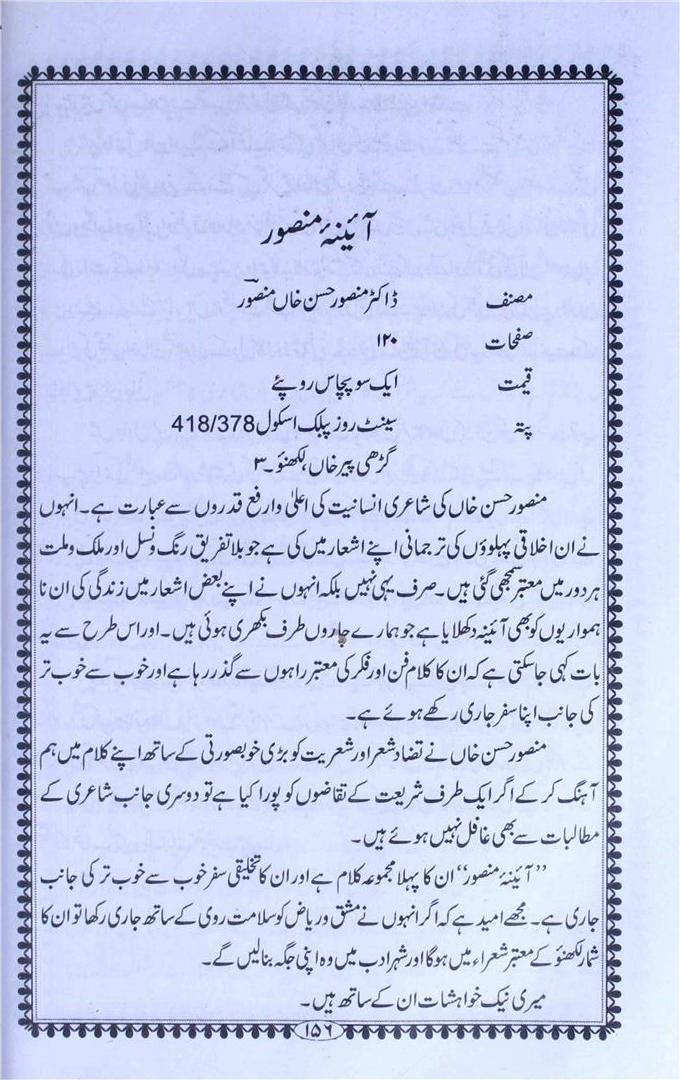 آئینۂ منصور
مصنف ڈاکٹر منصور حسن خاں منصور
صفحات ۱۲۰
قیمت ایک سو پچاس روپئے
پتہ سینٹ روز پبلک اسکول 418/378
گڑھی پیر خاں، لکھنؤ۔۳
منصور حسن خاں کی شاعری انسانیت کی اعلیٰ وارفع قدروں سے عبارت ہے۔ انہوں
نے ان اخلاقی پہلوؤں کی ترجمانی اپنے اشعار میں کی ہے جو بلا تفریق رنگ ونسل اور ملک وملت
ہر دور میں معتبر سمجھی گئی ہیں۔ صرف یہی نہیں بلکہ انہوں نے اپنے بعض اشعار میں زندگی کی ان نا
ہمواریوں کو بھی آئینہ دکھلایا ہے جو ہمارے چاروں طرف بکھری ہوئی ہیں۔ اور اس طرح سے یہ
بات کہی جاسکتی ہے کہ ان کا کلام فن اور فکر کی معتبر راہوں سے گذر رہا ہے اور خوب سے خوب تر
کی جانب اپنا سفر جاری رکھے ہوئے ہے۔
منصور حسن خاں نے تضاد شعر اور شعریت کو بڑی خوبصورتی کے ساتھ اپنے کلام میں ہم
آہنگ کر کے اگر ایک طرف شریعت کے تقاضوں کو پورا کیا ہے تو دوسری جانب شاعری کے
مطالبات سے بھی غافل نہیں ہوئے ہیں۔
’’آئینۂ منصور‘‘ ان کا پہلا مجموعہ کلام ہے اور ان کا تخلیقی سفر خوب سے خوب تر کی جانب
جاری ہے۔ مجھے امید ہے کہ اگر انہوں نے مشق وریاض کو سلامت روی کے ساتھ جاری رکھا تو ان کا
شمار لکھنؤ کے معتبر شعراء میں ہوگا اور شہر ادب میں وہ اپنی جگہ بنالیں گے۔
میری نیک خواہشات ان کے ساتھ ہیں۔
۱۵۶